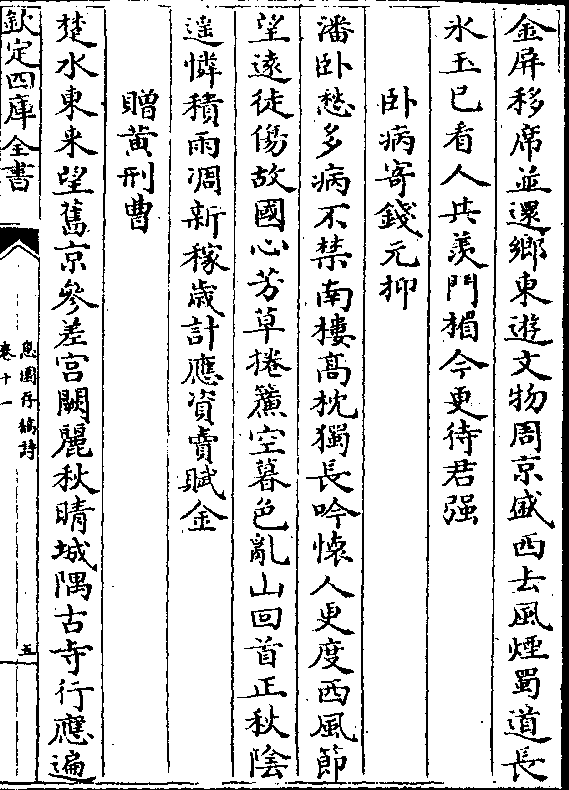 金屏移席並還鄉東遊文物周京盛西去風煙蜀道長
氷玉已看人共羡門楣今更待君强
卧病寄錢元抑
潘卧愁多病不禁南樓髙枕獨長吟懐人更度西風節
望遠徒傷故國心芳草捲簾空暮色亂山回首正秋陰
遥憐積雨凋新稼歲計應資賣賦金
贈黄刑曹
楚水東来望舊京參差宫闕麗秋晴城隅古寺行應遍
欽定四庫全書
息園存稿詩
卷十一
五